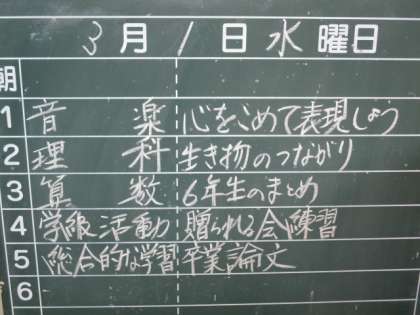 3月1日水曜日
朝
1 音楽 心をこめて表現しよう
2 理科 生き物のつながり
3 算数 6年生のまとめ
4 学級活動 贈られる会練習
5 総合的な学習 卒業論文
6